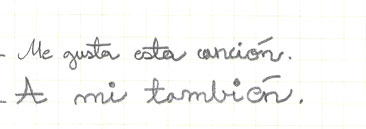 - Me gusta esta canción.
- A mi también.